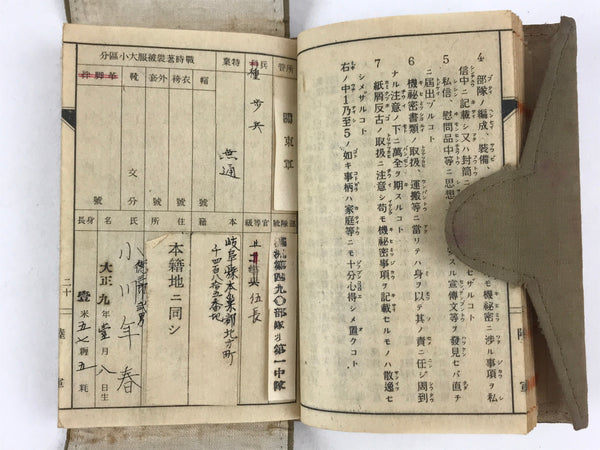 4 部隊ノ編成、裝備、
モ機秘密ニ渉ル事項ヲ私
信中ニ記載シ又ハ封筒ニ
セザルコト
5 私信、慰問品中等ニ思想
スル宣傳文等ヲ發見セバ直チ
ニ屆出ヅルコト
6 機秘密書類ノ取扱、運搬等ニ當リテハ身ヲ以テ其ノ責ニ任ジ周到
ナル注意ノ下ニ萬全ヲ期スルコト
7 紙屑反古ノ取扱ニ注意シ苟モ機秘密事項ヲ記載セルモノハ散逸セ
シメザルコト
右ノ中1乃至5ノ如キ事柄ハ家庭等ニモ十分心得シメ置クコト
陸軍
戰時著裝被服大小區分
帽 號
衣袴
外套
靴 文 分
所管
關東軍
兵科
種
特業
歩兵
無通
部隊號
第四九〇部隊
第一中隊
官等級
伍長
本籍
岐阜縣本巣郡北方町
千四百八十五番地
住所
本籍地ニ同シ
氏名
小川年春
大正九年壹月八日生
身長
壹米五七糎五粍
二十
陸軍